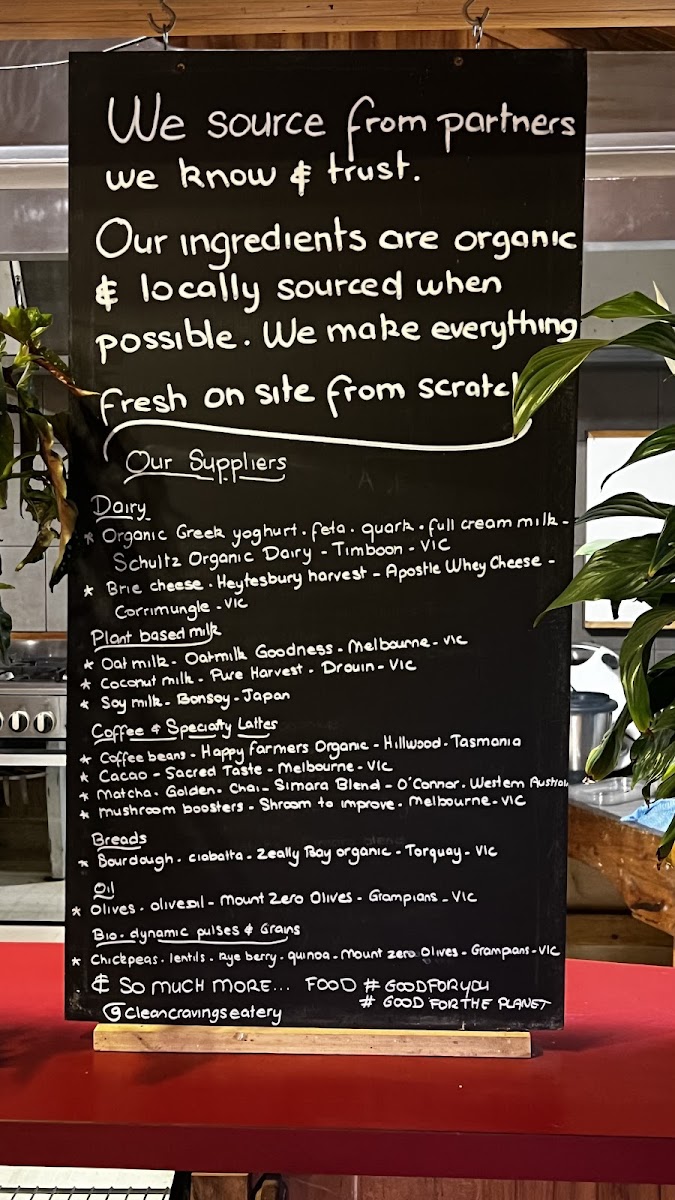 We source from partners
we know & trust.
Our ingredients are organic
& locally sourced when
possible. We make everything
fresh on site from scratch
Our Suppliers
Dairy
* Organic Greek yoghurt . feta . quark . full cream milk -
Schultz Organic Dairy - Timboon - VIC
* Brie cheese . Heytesbury harvest - Apostle Whey Cheese -
Corrimungle - VIC
Plant based milk
* Oat milk - Oatmilk Goodness - Melbourne - VIC
* Coconut milk - Pure Harvest - Drouin - VIC
* Soy milk - Bonsoy - Japan
Coffee & Specialty Lattes
* Coffee beans - Happy farmers Organic - Hillwood - Tasmania
* Cacao - Sacred Taste - Melbourne - VIC
* Matcha . Golden . Chai - Simara Blend - O'Connor . Western Austral
* Mushroom boosters - Shroom to improve - Melbourne - VIC
Breads
* Sourdough . ciabatta - Zeally Bay organic - Torquay - VIC
Oil
* Olives . olive oil - Mount Zero Olives - Grampians - VIC
Bio-dynamic pulses & Grains
* Chickpeas . lentils . Rye berry . quinoa - Mount zero Olives - Grampians - VIC
& SO MUCH MORE... FOOD # GOODFORYOU
# GOOD FOR THE PLANET
@cleancravingseatery